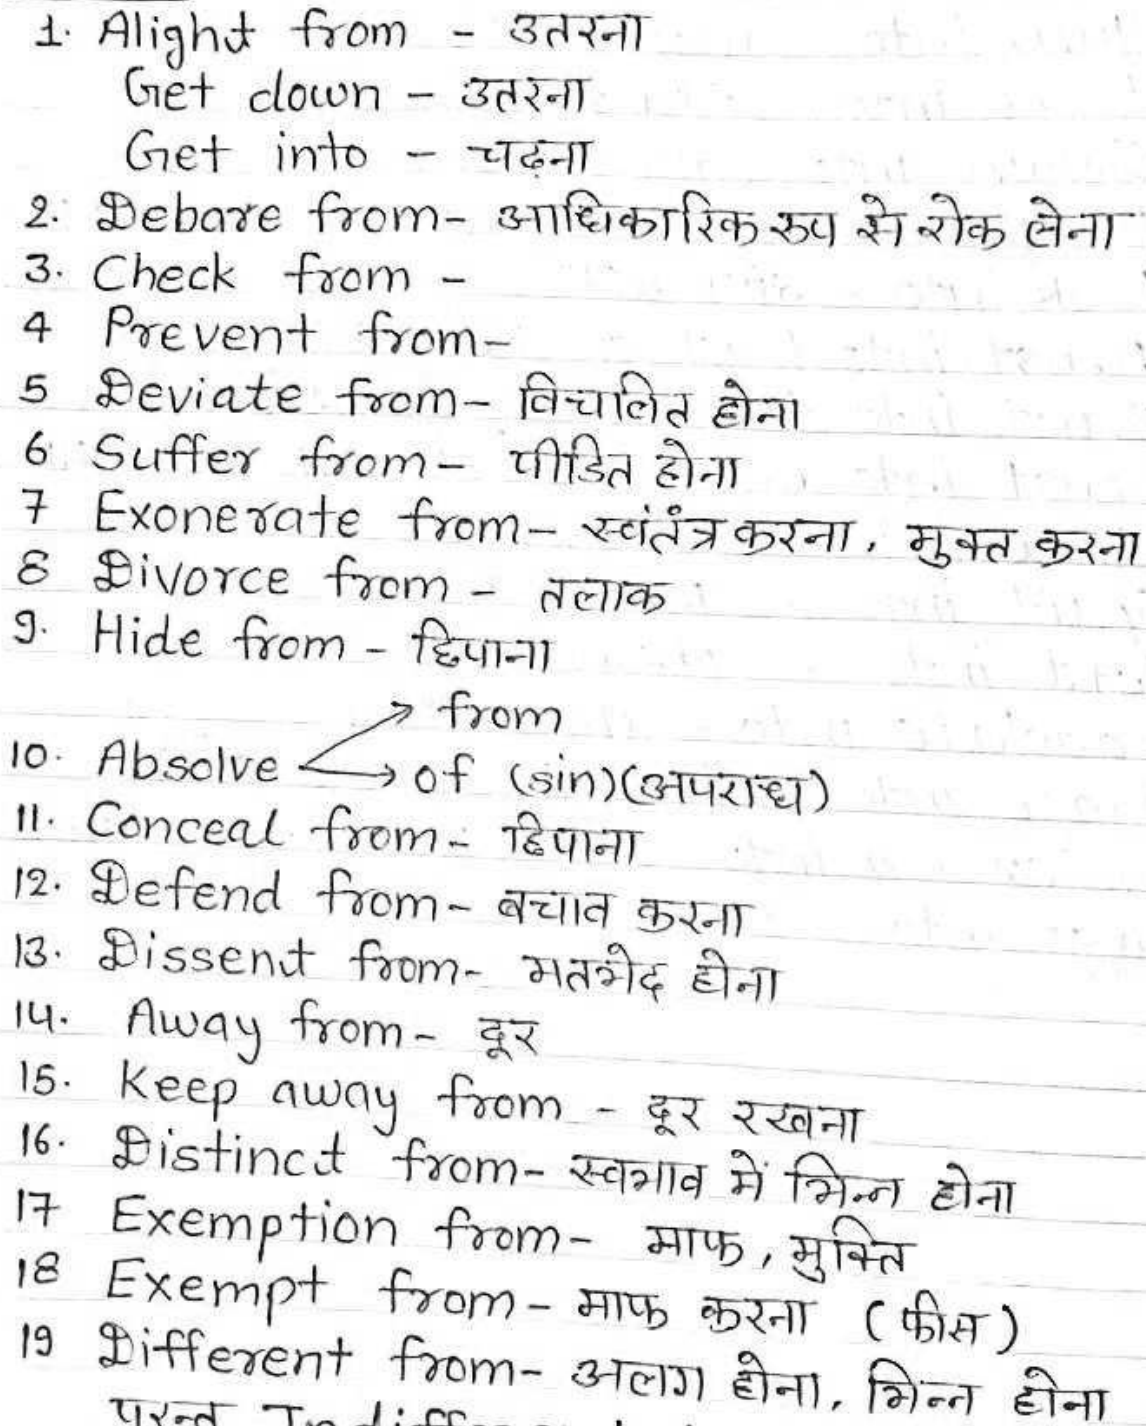 1. Alight from - उतरना
Get down - उतरना
Get into - चढ़ना
2. Debare from - आधिकारिक रूप से रोक लेना
3. Check from -
4 Prevent from -
5 Deviate from - विचलित होना
6 Suffer from - पीडित होना
7 Exonerate from - स्वंतंत्र करना, मुक्त करना
8 Divorce from - तलाक
9. Hide from - छिपाना
from
10. Absolve of (sin) (अपराध)
11. Conceal from - छिपाना
12. Defend from - बचाव करना
13. Dissent from - मतभेद होना
14. Away from - दूर
15. Keep away from - दूर रखना
16. Distinct from - स्वभाव में भिन्न होना
17 Exemption from - माफ, मुक्ति
18 Exempt from - माफ करना (फीस)
19 Different from - अलग होना, भिन्न होना